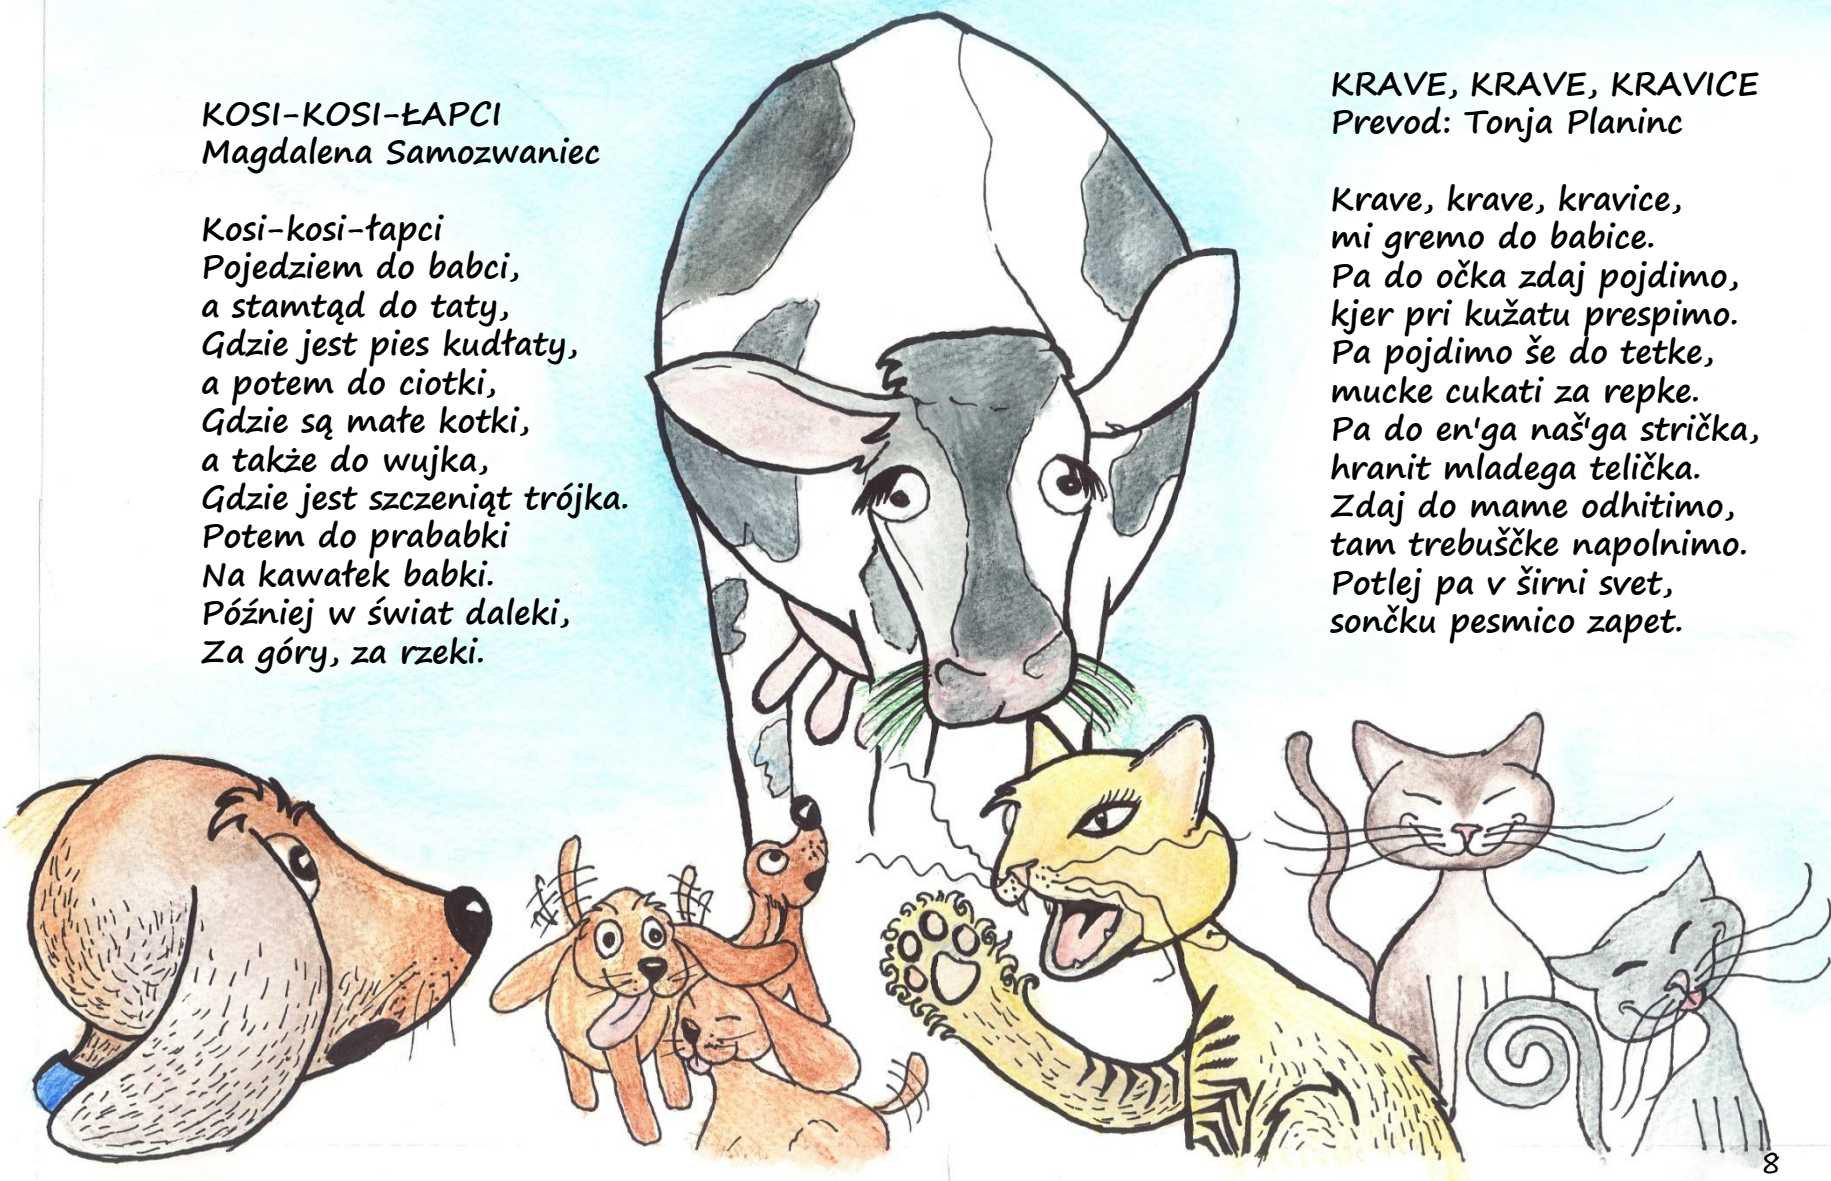 KOSI-KOSI-ŁAPCI
Magdalena Samozwaniec
Kosi-kosi-łapci
Pojedziem do babci,
a stamtąd do taty,
Gdzie jest pies kudłaty,
a potem do ciotki,
Gdzie są małe kotki,
a także do wujka,
Gdzie jest szczeniąt trójka.
Potem do prababki
Na kawałek babki.
Później w świat daleki,
Za góry, za rzeki.
KRAVE, KRAVE, KRAVICE
Prevod: Tonja Planinc
Krave, krave, kravice,
mi gremo do babice.
Pa do očka zdaj pojdimo,
kjer pri kužatu prespimo.
Pa pojdimo še do tetke,
mucke cukati za repke.
Pa do en'ga naš'ga strička,
hranit mladega telička.
Zdaj do mame odhitimo,
tam trebuščke napolnimo.
Potlej pa v širni svet,
sončku pesmico zapet.
8